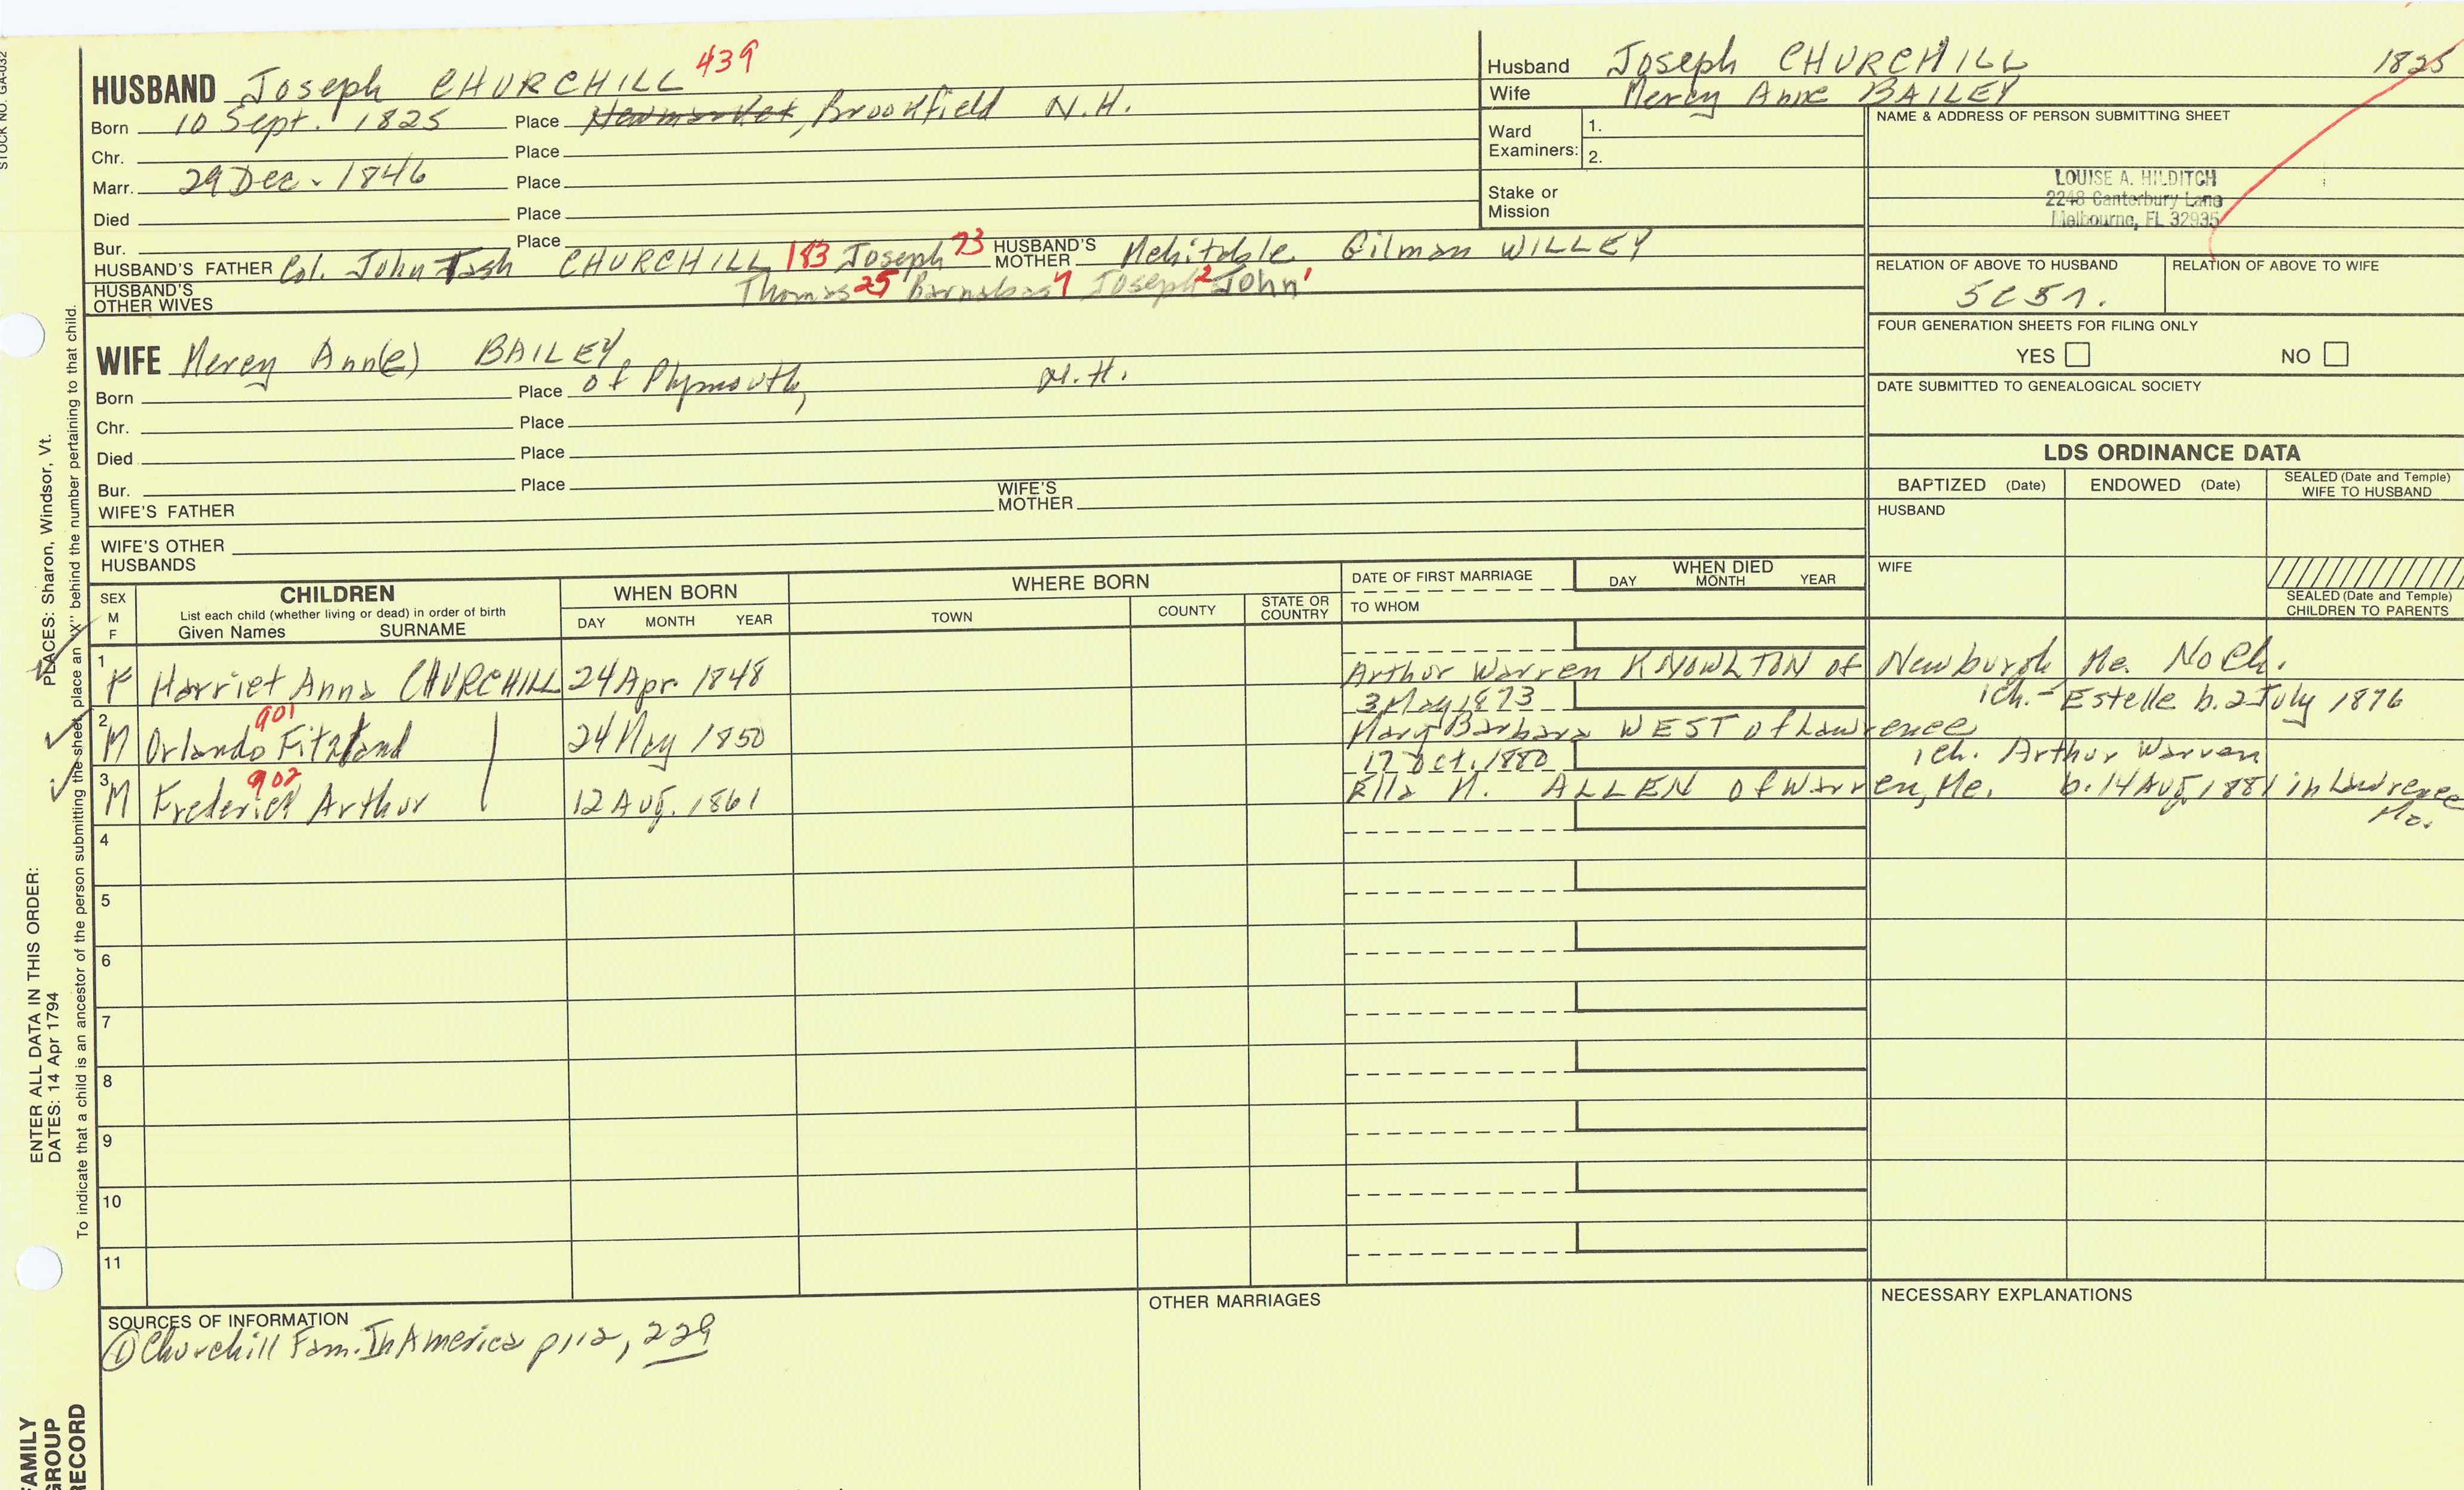 STOCK NO. GA-032
HUSBAND Joseph CHURCHILL 439
Born 10 Sept. 1825 Place Newmarket, Brookfield N.H.
Chr. Place
Marr. 29 Dec. 1846 Place
Died Place
Bur. Place
HUSBAND'S FATHER Col. John Tash CHURCHILL 183 Joseph 73 HUSBAND'S MOTHER Mehitable Gilman WILLEY
HUSBAND'S OTHER WIVES Thomas 25 Barnabas 7 Joseph 2 John 1
Husband Joseph CHURCHILL 1825
Wife Mercy Anne BAILEY
Ward Examiners: 1.
2.
Stake or Mission
NAME & ADDRESS OF PERSON SUBMITTING SHEET
LOUISE A. HILDITCH
2248 Canterbury Lane
Melbourne, FL 32935
RELATION OF ABOVE TO HUSBAND RELATION OF ABOVE TO WIFE
5C5r.
FOUR GENERATION SHEETS FOR FILING ONLY
YES NO
DATE SUBMITTED TO GENEALOGICAL SOCIETY
WIFE Mercy Ann(e) BAILEY
Born Place of Plymouth, N.H.
Chr. Place
Died Place
Bur. Place
WIFE'S FATHER WIFE'S MOTHER
WIFE'S OTHER HUSBANDS
LDS ORDINANCE DATA
BAPTIZED (Date) ENDOWED (Date) SEALED (Date and Temple) WIFE TO HUSBAND
HUSBAND
WIFE
SEALED (Date and Temple) CHILDREN TO PARENTS
SEX M F CHILDREN WHEN BORN WHERE BORN DATE OF FIRST MARRIAGE WHEN DIED
List each child (whether living or dead) in order of birth
Given Names SURNAME DAY MONTH YEAR TOWN COUNTY STATE OR COUNTRY TO WHOM DAY MONTH YEAR
1 F Harriet Anna CHURCHILL 24 Apr. 1848 Arthur Warren KNOWLTON of Newburgh Me. No Ch.
901 3 May 1873 1ch.- Estelle b. 2 July 1876
2 M Orlando Fitzland 24 May 1850 Mary Barbara WEST of Lawrence
902 17 Oct. 1880 1ch. Arthur Warren
3 M Frederick Arthur 12 Aug. 1861 Ella M. ALLEN of Warren, Me. b. 14 Aug 1881 in Lawrence
Ma.
4
5
6
7
8
9
10
11
SOURCES OF INFORMATION OTHER MARRIAGES NECESSARY EXPLANATIONS
① Churchill Fam. In America p112, 229
PLACES: Sharon, Windsor, Vt.
To indicate that a child is an ancestor of the person submitting the sheet, place an "X" behind the number pertaining to that child.
ENTER ALL DATA IN THIS ORDER:
DATES: 14 Apr 1794
FAMILY
GROUP
RECORD